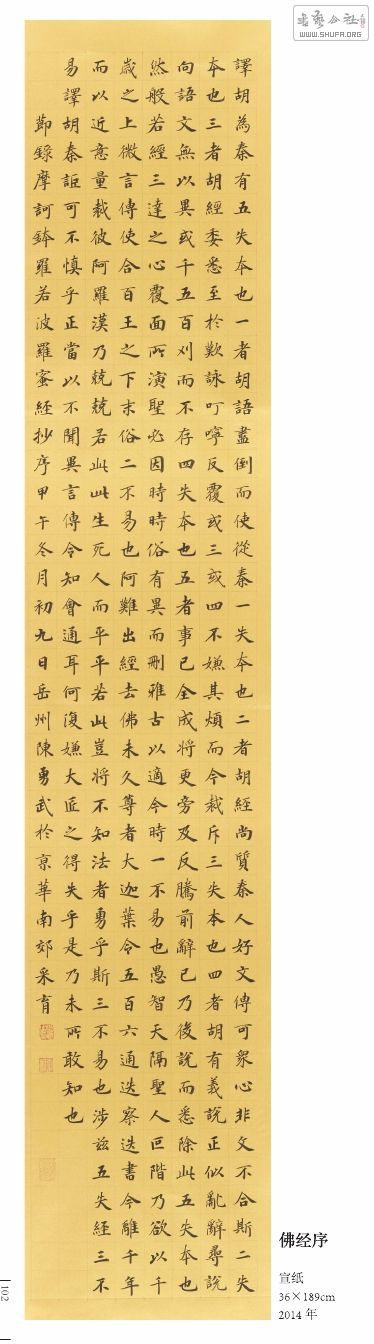 譯胡為秦有五失本也一者胡語盡倒而使從秦一失本也二者胡經尚質秦人好文傳可眾心非文不合斯二失
本也三者胡經委悉至於歎詠叮嚀反覆或三或四不嫌其煩而今裁斥三失本也四者胡有義說正似亂辭尋說
向語文無以異或千五百刈而不存四失本也五者事已全成將更旁及反騰前辭已乃後說而悉除此五失本也
然般若經三達之心覆面所演聖必因時時俗有異而刪雅古以適今時一不易也愚智天隔聖人叵階乃欲以千
歲之上微言傳使合百王之下末俗二不易也阿難出經去佛未久尊者大迦葉令五百六通迭察迭書今離千年
而以近意量裁彼阿羅漢乃兢兢若此此生死人而平平若此豈將不知法者勇乎斯三不易也涉茲五失經三不
易譯胡秦詎可不慎乎正當以不聞異言傳令知會通耳何復嫌大匠之得失乎是乃未所敢知也
節錄摩訶鉢羅若波羅蜜經抄序甲午冬月初九日岳州陳勇武於京華南郊采育
佛经序
宣纸
36×189cm
2014 年
102
书艺公社
WWW.SHUFA.ORG